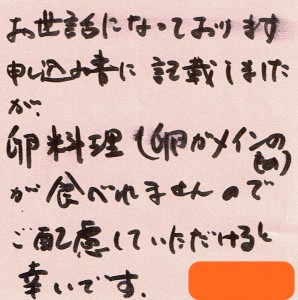 お世話になっております
申し込み書に記載しました
が、
卵料理（卵がメインの
もの）
が食べれませんので
ご配慮していただけると
幸いです。